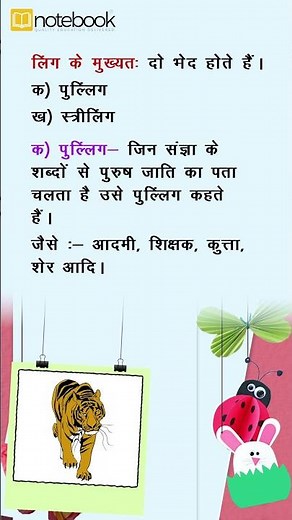 notebook
QUALITY EDUCATION DELIVERED
लिंग के मुख्यतः दो भेद होते हैं।
क) पुल्लिंग
ख) स्त्रीलिंग
क) पुल्लिंग– जिन संज्ञा के
शब्दों से पुरुष जाति का पता
चलता है उसे पुल्लिंग कहते
हैं।
जैसे :– आदमी, शिक्षक, कुत्ता,
शेर आदि।